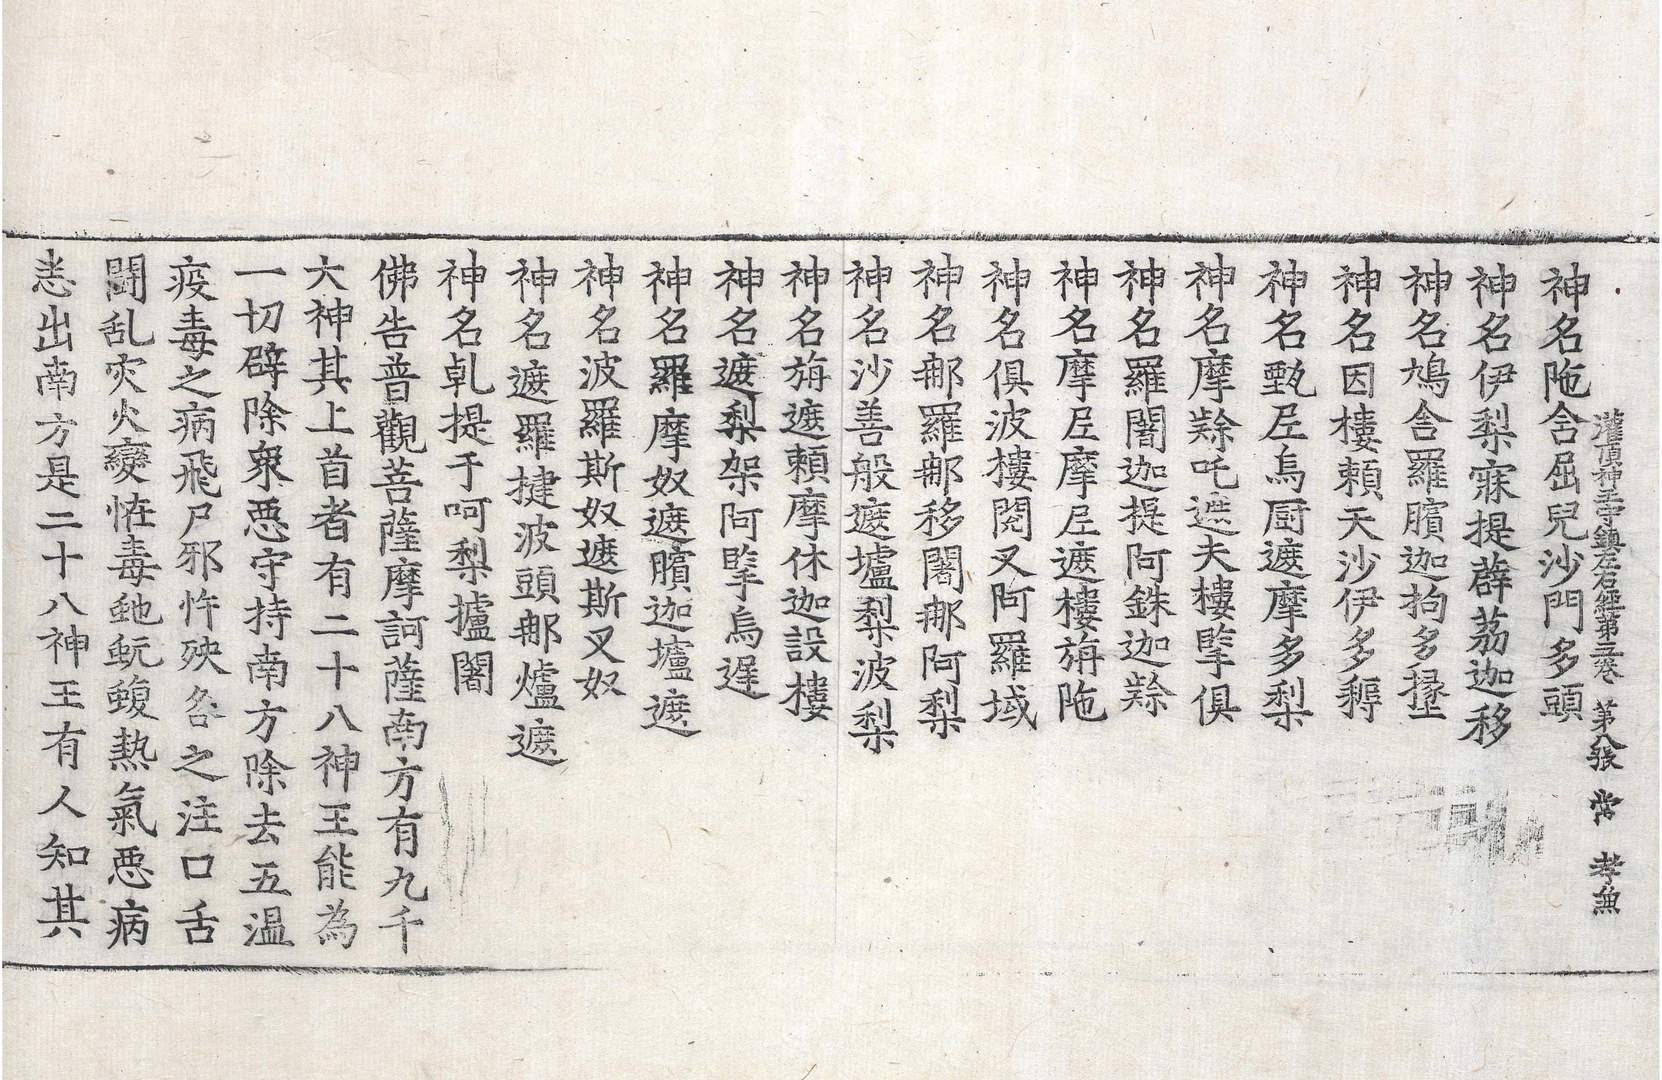 灌頂神王守鎮左右經第五卷 第八張 常 孝無
神名陁舍屈兒沙門多頭
神名伊梨寐提薜荔迦移
神名鳩舍羅臏迦拘多
神名因樓賴天沙伊多
神名甄尼烏厨遮摩多梨
神名摩 吒遮夫樓掔俱
神名羅闍迦提阿銖迦
神名摩尼摩尼遮樓旃陁
神名俱波樓閱叉阿羅域
神名郍羅郍移闍郍阿梨
神名沙善般遮壚梨波梨
神名旃遮頼摩休迦設樓
神名遮梨架阿掔烏遅
神名羅摩奴遮臏迦壚遮
神名波羅斯奴遮斯叉奴
神名遮羅揵波頭郍爐遮
神名乹提于呵梨攎闍
佛告普觀菩薩摩訶薩南方有九千
大神其上首者有二十八神王能為
一切辟除衆惡守持南方除去五温
疫毒之病飛尸邪忤殃咎之注口舌
閗乱灾火變恠毒虵蚖蝮熱氣惡病
恚出南方是二十八神王有人知其